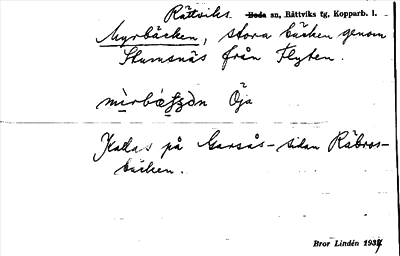 Rättviks Boda sn, Rättviks tg, Kopparb. l.
Myrbäcken, stora bäcken genom
Stumsnäs från Flyten.
Öja
Kallas på Garsås-sidan Räbros-
bäcken.
Bror Lindén 1937